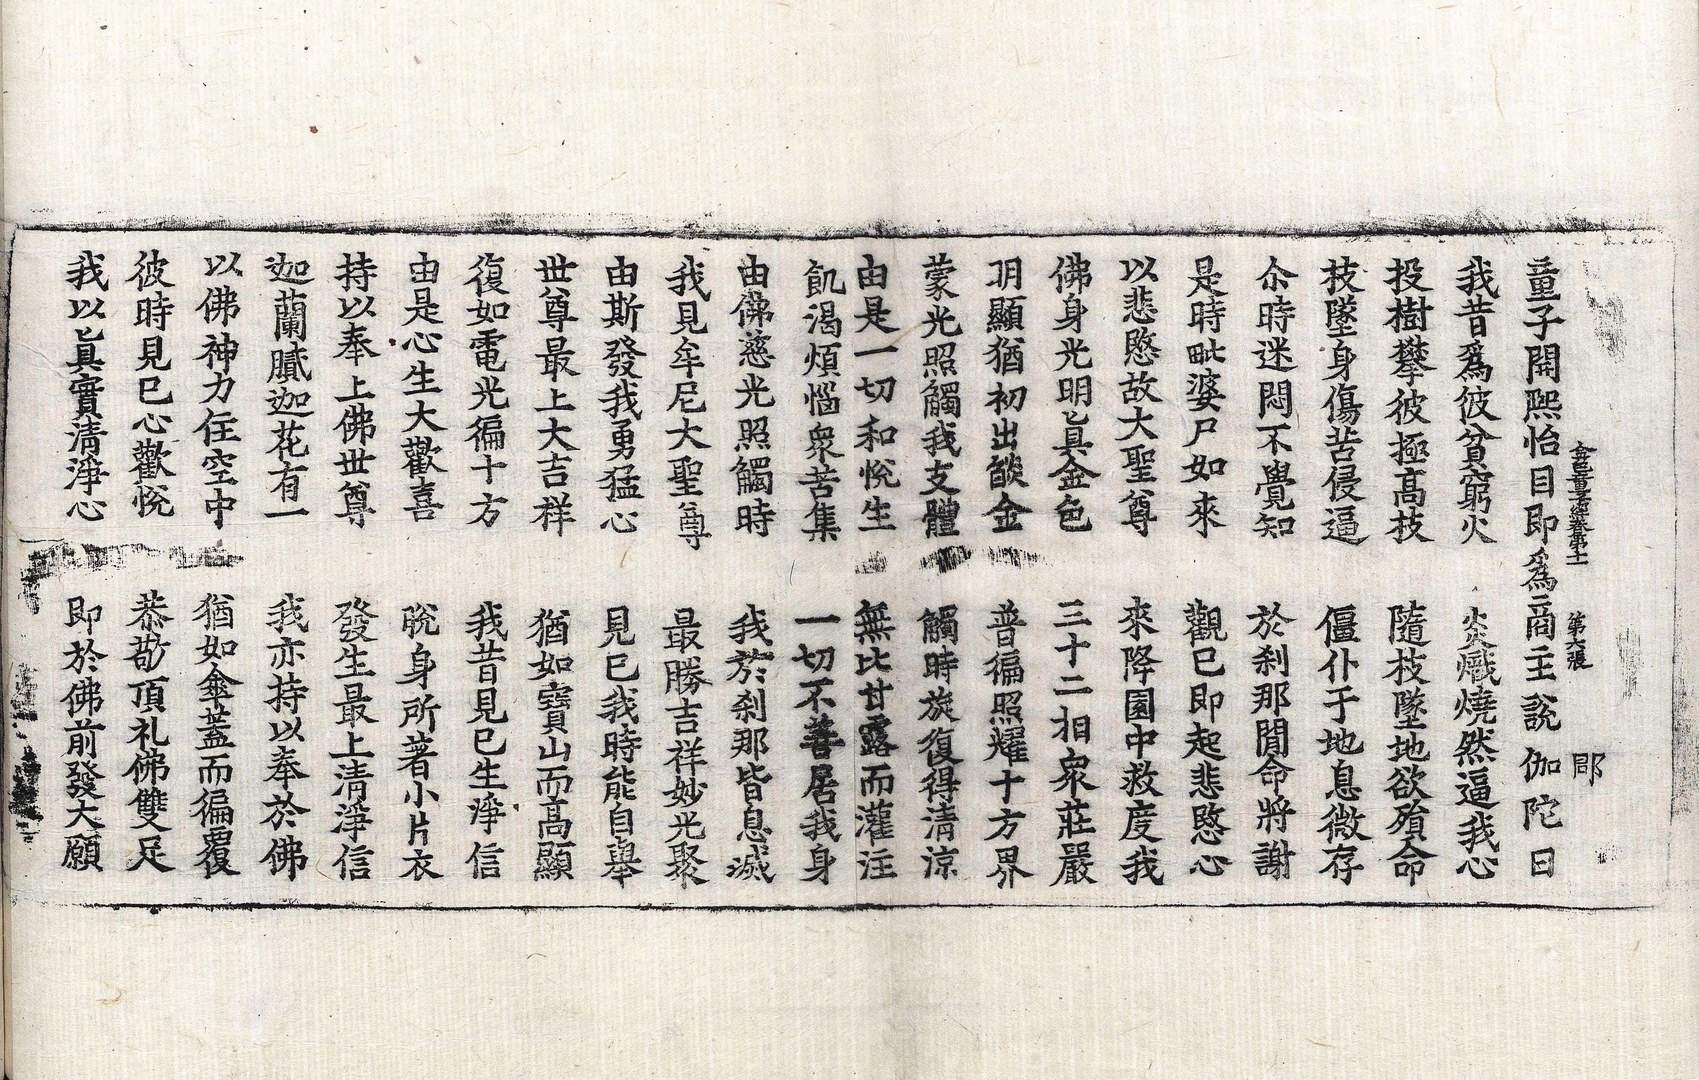 金色童子經卷第十一 第六張 郡
童子開熙怡目即爲商主說伽陀曰
我昔爲彼貧窮火 炎熾燒然逼我心
投樹攀彼極高枝 隨枝墜地欲殞命
枝墜身傷苦侵逼 僵仆于地息微存
尒時迷悶不覺知 於刹那閒命將謝
是時毗婆尸如來 觀已即起悲愍心
以悲愍故大聖尊 來降園中救度我
佛身光明眞金色 三十二相衆莊嚴
明顯猶初出燄金 普徧照耀十方界
蒙光照觸我支體 觸時旋復得清涼
由是一切和悅生 無比甘露而灌注
飢渴煩惱衆苦集 一切不善居我身
由佛慈光照觸時 我於刹那皆息滅
我見牟尼大聖尊 最勝吉祥妙光聚
由斯發我勇猛心 見已我時能自舉
世尊最上大吉祥 猶如寶山而高顯
復如電光徧十方 我昔見已生淨信
由是心生大歡喜 脫身所著小片衣
持以奉上佛世尊 發生最上清淨信
迦蘭膩迦花有一 我亦持以奉於佛
以佛神力住空中 猶如傘蓋而徧覆
彼時見已心歡悅 恭敬頂礼佛雙足
我以眞實清淨心 即於佛前發大願